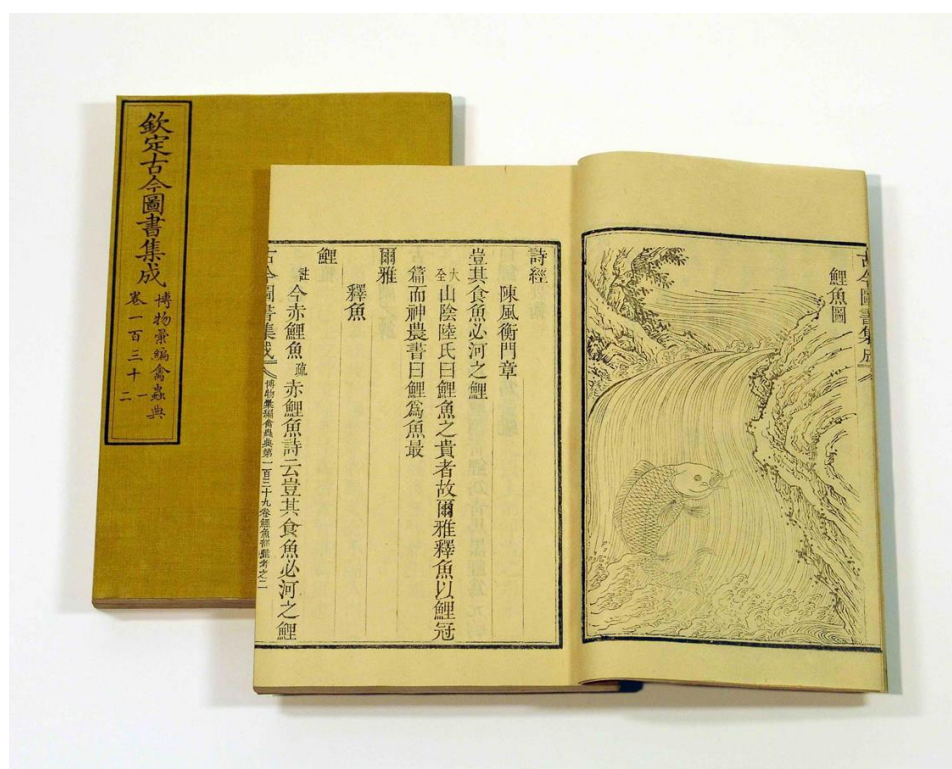 欽定古今圖書集成
博物彙編禽蟲典
卷一百三十一
二
古今圖書集成
鯉魚圖
詩經
陳風衡門章
豈其食魚必河之鯉
大全山陰陸氏曰鯉魚之貴者故爾雅釋魚以鯉冠
篇而神農書曰鯉為魚最
爾雅
釋魚
鯉
註今赤鯉魚疏赤鯉魚詩云豈其食魚必河之鯉
古今圖書集成
博物彙編禽蟲典第一百三十九卷鯉魚部彙考之二